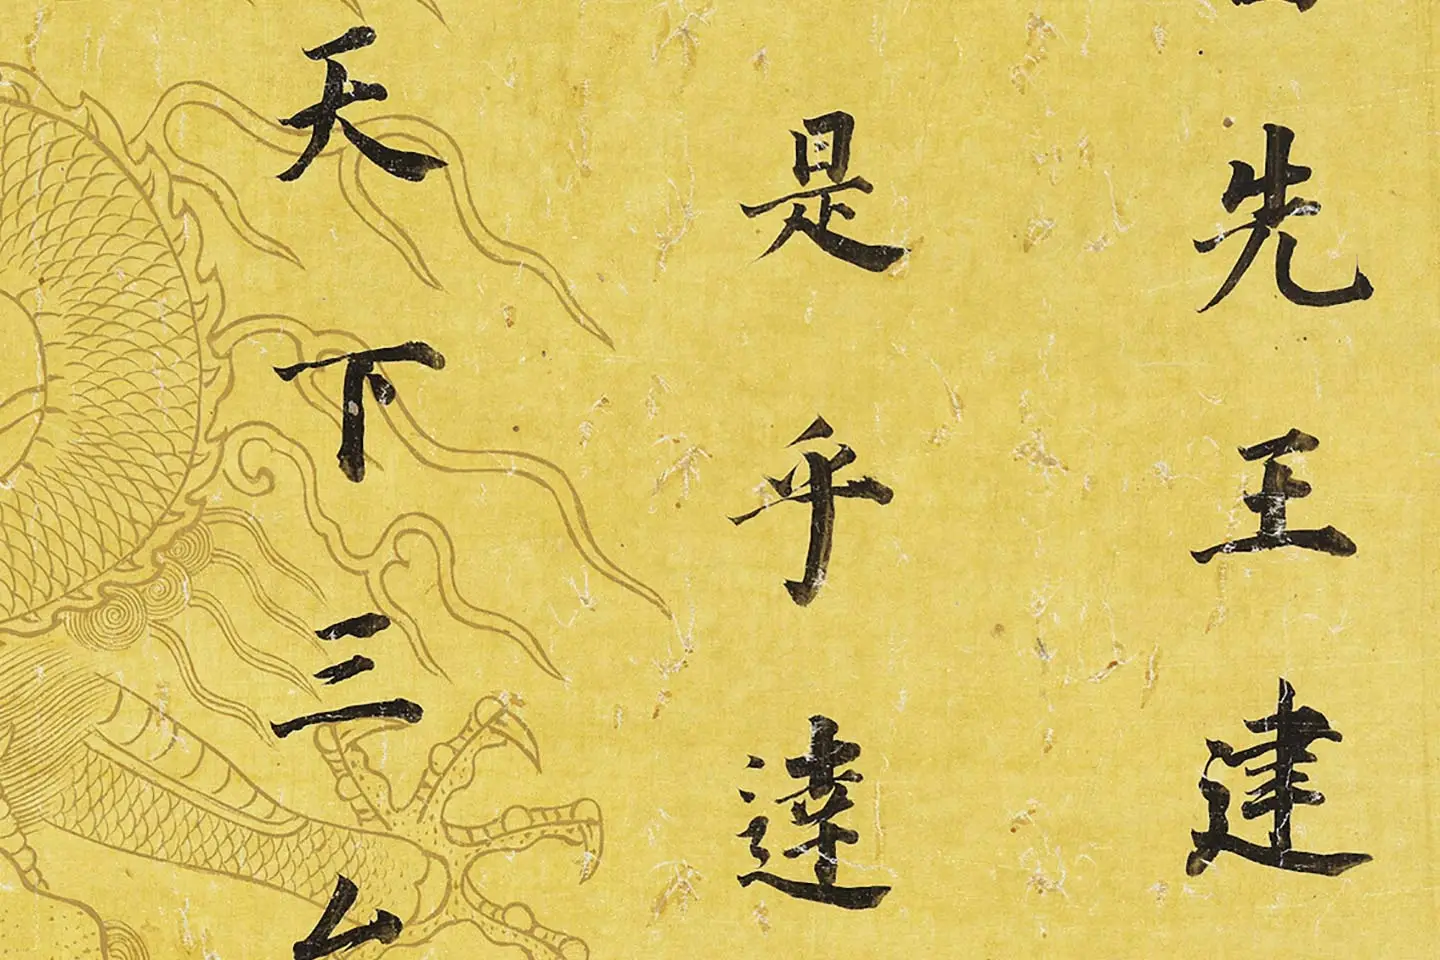 先王建
是乎逹
天下三